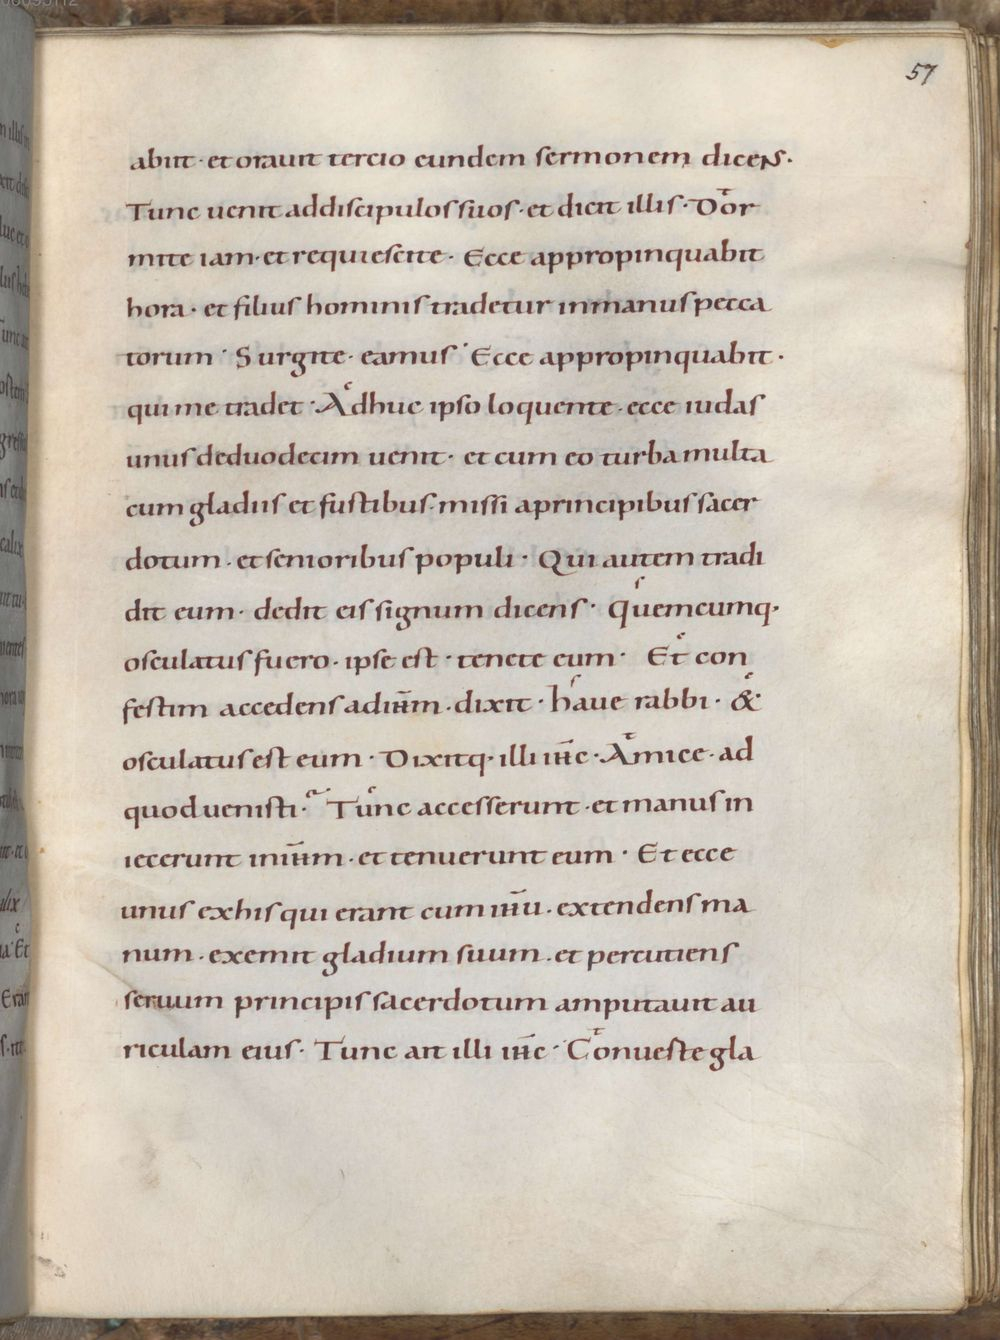 57
abiit · et orauit tercio eundem sermonem dicens.
Tunc uenit addiscipulos suos · et dicit illis · Dor
mite iam · et requiescite · Ecce appropinquabit
hora · et filius hominis tradetur inmanus pecca
torum · Surgite · eamus · Ecce appropinquabit ·
qui me tradet · Adhuc ipso loquente · ecce iudas
unus deduodecim uenit · et cum eo turba multa
cum gladiis et fustibus · missi aprincipibus sacer
dotum · et senioribus populi · Qui autem tradi
dit eum · dedit eis signum dicens · Quemcumq·
osculatus fuero · ipse est · tenete eum · Et con
festim accedens ad iħm · dixit · haue rabbi · &
osculatus est eum · Dixitq· illi iħc · Amice · ad
quod uenisti · Tunc accesserunt · et manus in
iecerunt in iħm · et tenuerunt eum · Et ecce
unus exhis qui erant cum iħu · extendens ma
num · exemit gladium suum · et percutiens
seruum principis sacerdotum amputauit au
riculam eius · Tunc ait illi iħc · Conueste gla